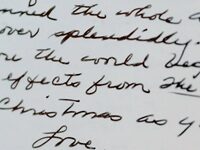 the whole a
over splendidly
the world
effects from the
Christmas as y
Love